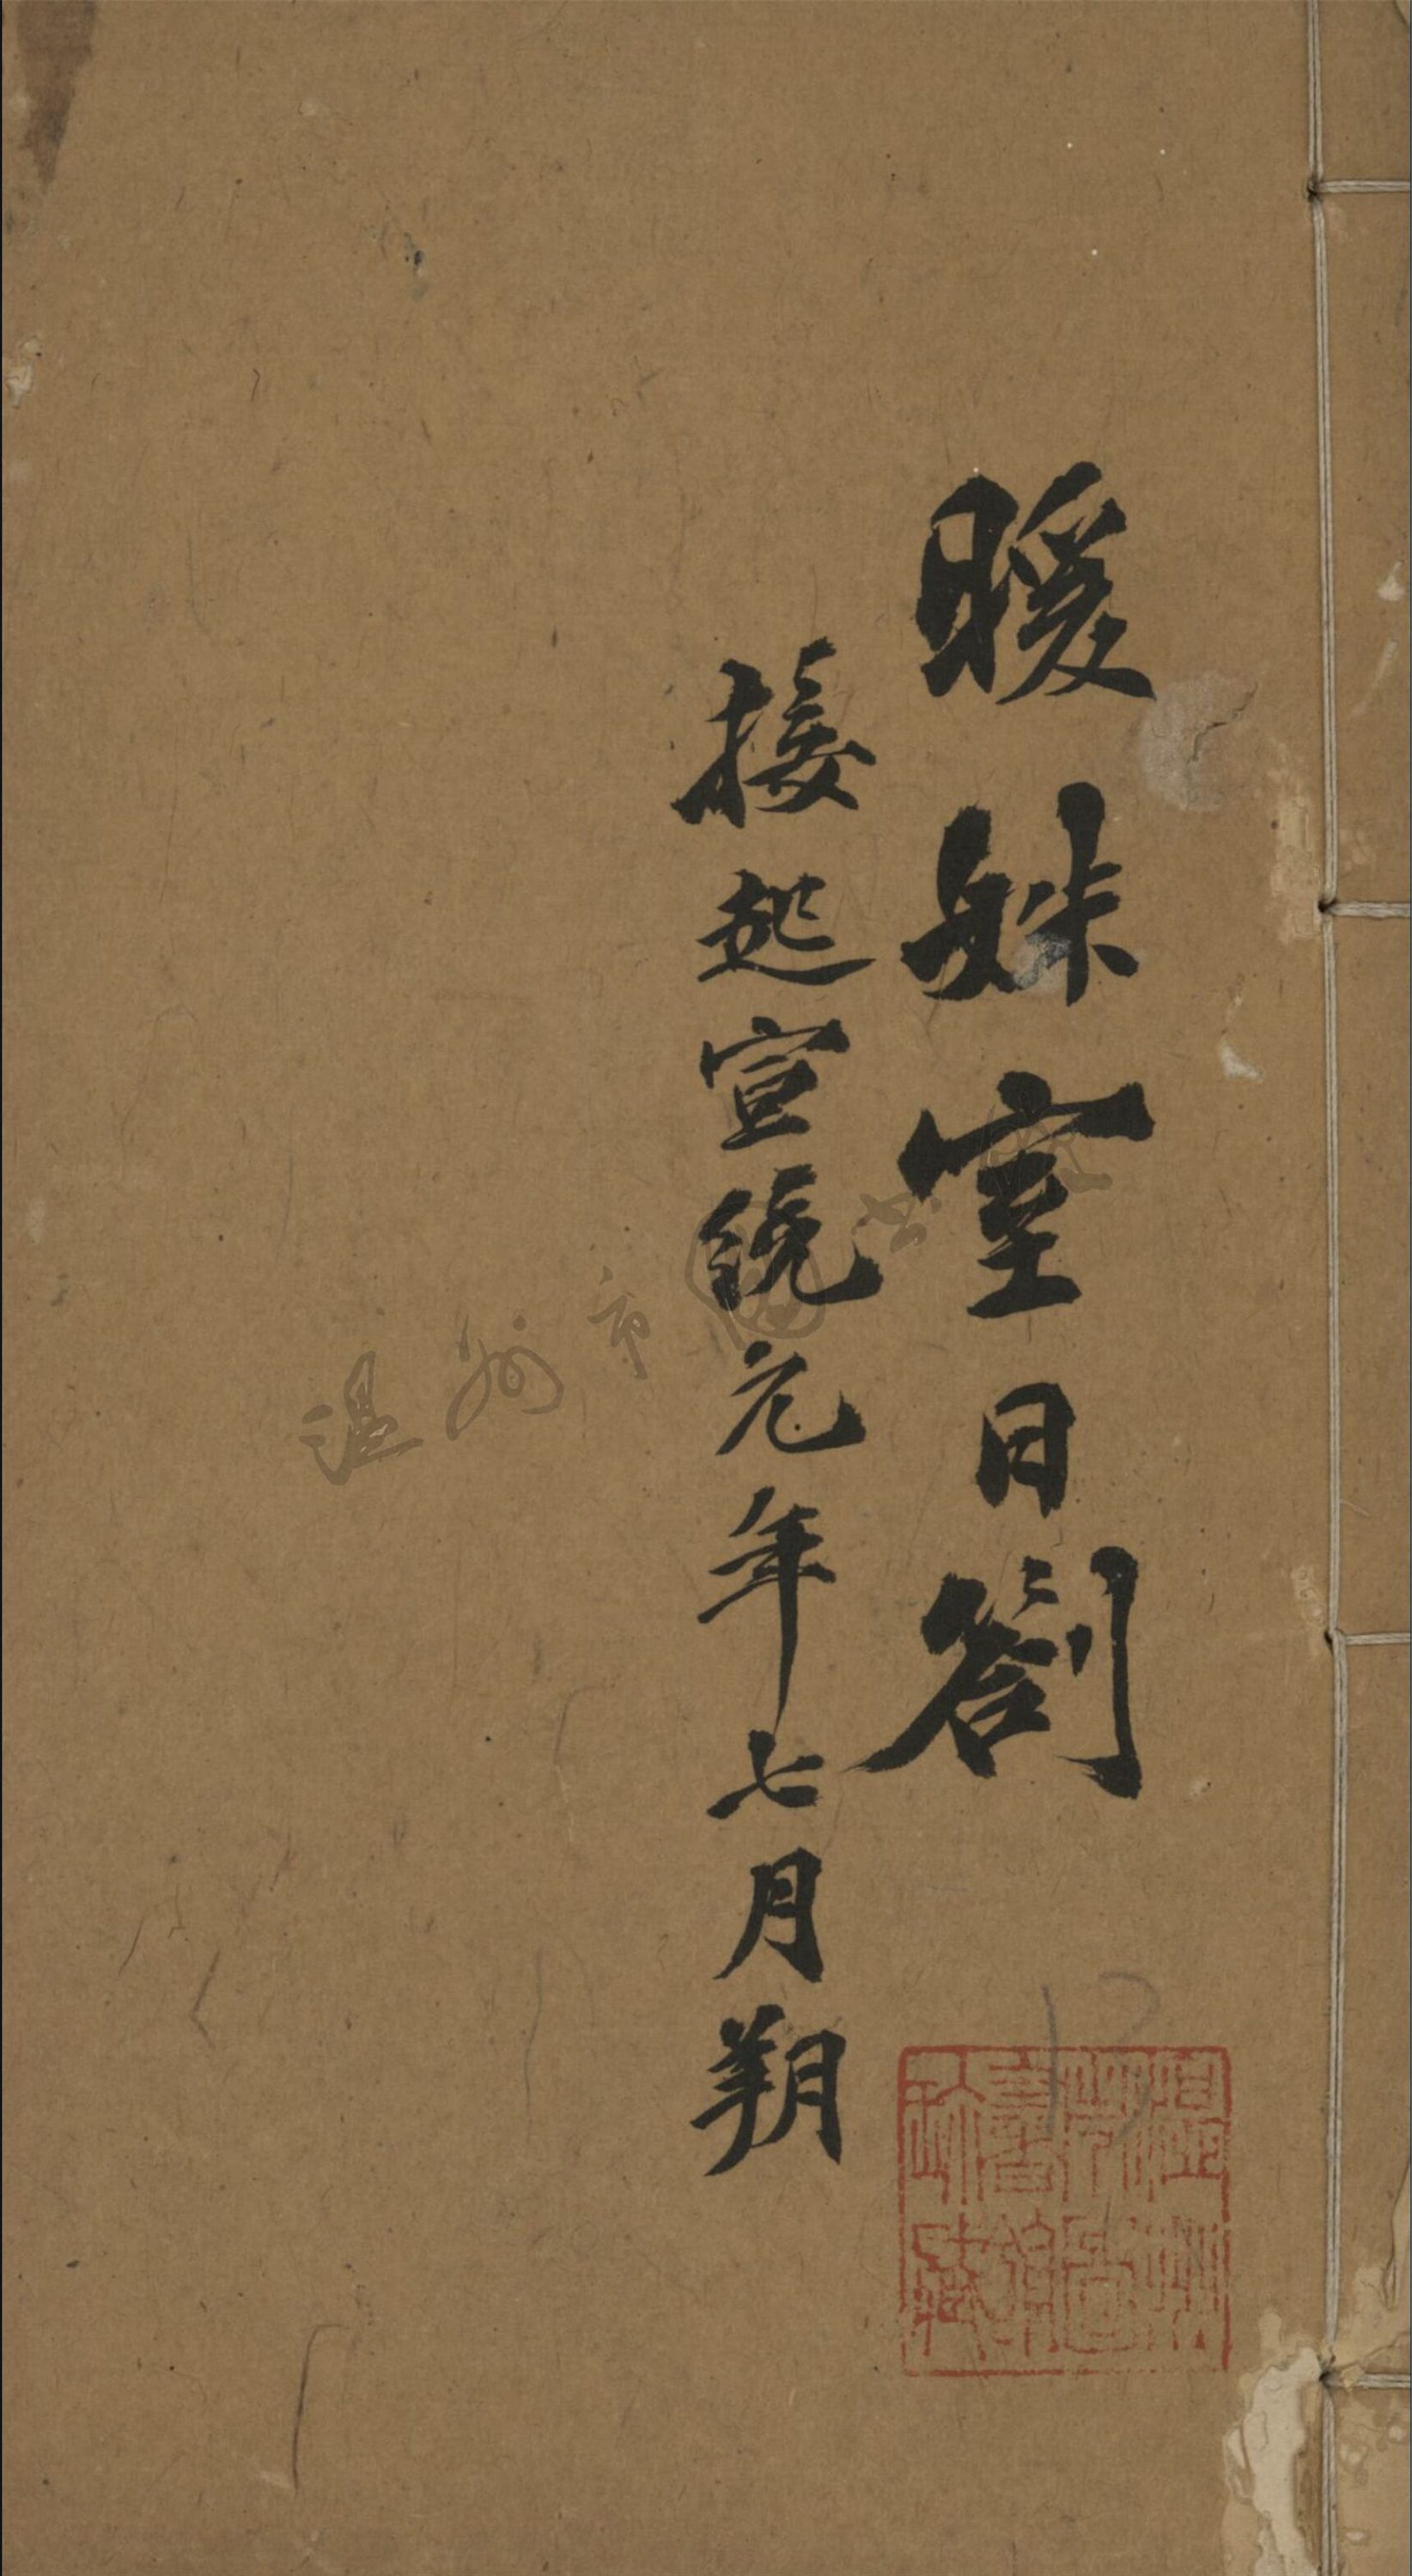 暖姝室日劄
接起宣統元年七月朔
温州市圖书館